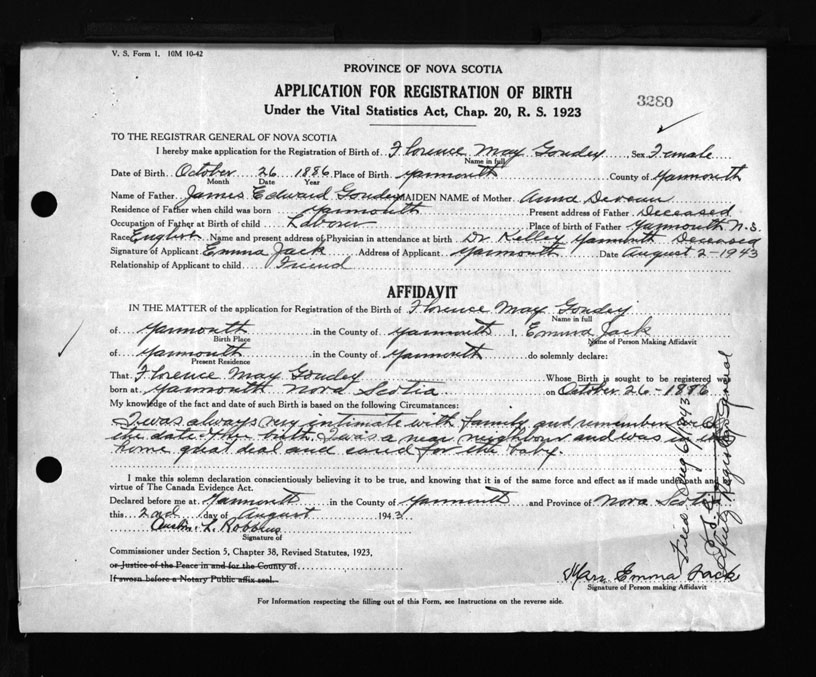 V. S. Form 1. 10M 10-42
PROVINCE OF NOVA SCOTIA
APPLICATION FOR REGISTRATION OF BIRTH
3280
Under the Vital Statistics Act, Chap. 20, R. S. 1923
TO THE REGISTRAR GENERAL OF NOVA SCOTIA
I hereby make application for the Registration of Birth of Florence May Goudey, Sex Female
Name in full
Date of Birth October 26 1886 Place of Birth Yarmouth County of Yarmouth
Month Date Year
Name of Father James Edward Goudey MAIDEN NAME of Mother Anna
Residence of Father when child was born Yarmouth Present address of Father Deceased
Occupation of Father at Birth of child Labour Place of birth of Father Yarmouth N.S.
Race English Name and present address of Physician in attendance at birth Dr Kelley Yarmouth Deceased
Signature of Applicant Emma Jack Address of Applicant Yarmouth Date August 2-1943
Relationship of Applicant to child Friend
AFFIDAVIT
IN THE MATTER of the application for Registration of the Birth of Florence May Goudey
Name in full
of Yarmouth in the County of Yarmouth I, Emma Jack
Birth Place Name of Person Making Affidavit
of Yarmouth in the County of Yarmouth do solemnly declare:
Present Residence
That Florence May Goudey Whose Birth is sought to be registered was
born at Yarmouth Nova Scotia on October 26-1886
My knowledge of the fact and date of such Birth is based on the following Circumstances:
I was always very intimate with family and remember well
the date of her birth. I was a near neighbour and was in the
home great deal and cared for the baby.
I make this solemn declaration conscientiously believing it to be true, and knowing that it is of the same force and effect as if made under oath and
virtue of The Canada Evidence Act.
Declared before me at Yarmouth in the County of Yarmouth and Province of Nova Scotia
this 2nd day of August 1943
L. Robbins
Signature of
Commissioner under Section 5, Chapter 38, Revised Statutes, 1923,
or Justice of the Peace in and for the County of
If sworn before a Notary Public affix seal.
Mary Emma Jack
Signature of Person making Affidavit
For Information respecting the filling out of this Form, see Instructions on the reverse side.
Aug 6/1943
Deputy Registrar General